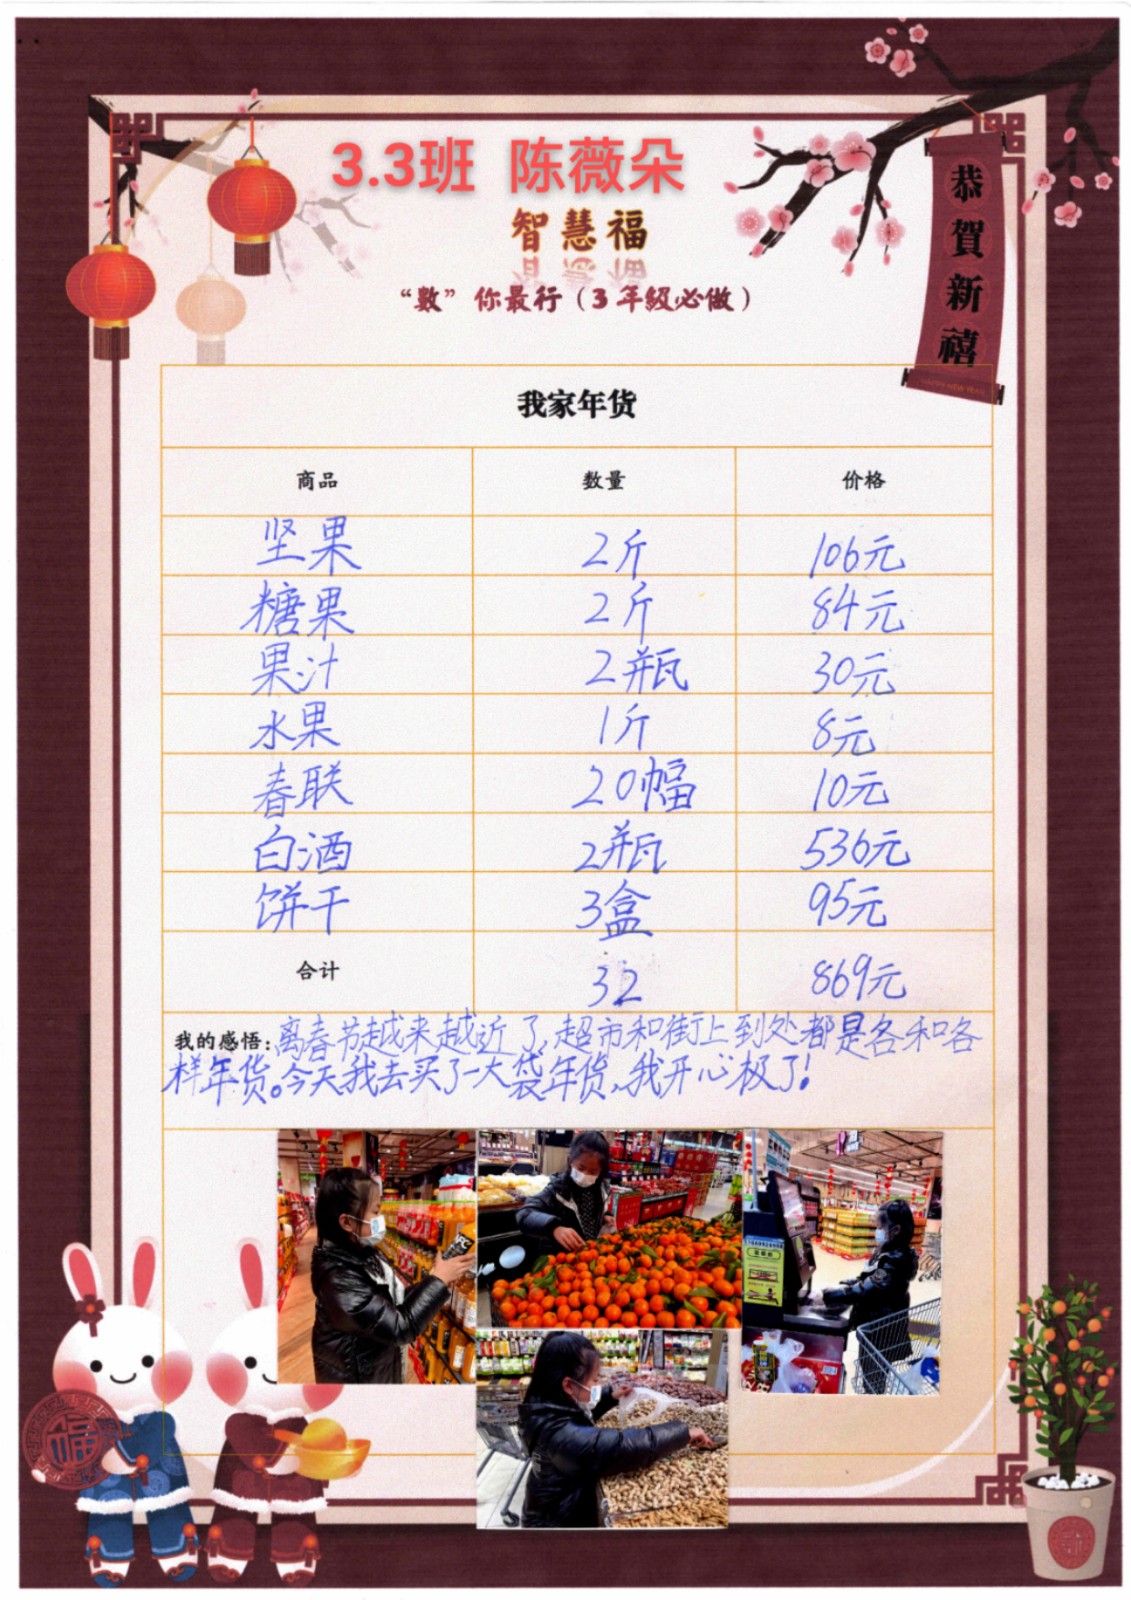 3.3班 陈薇朵
智慧福
“数”你最行（3年级必做）
恭賀新禧
HAPPY NEW YEAR
我家年货
商品 数量 价格
坚果 2斤 106元
糖果 2斤 84元
果汁 2瓶 30元
水果 1斤 8元
春联 20幅 10元
白酒 2瓶 536元
饼干 3盒 95元
合计 32 869元
我的感悟：离春节越来越近了，超市和街上到处都是各和各
样年货。今天我去买了一大袋年货，我开心极了！
NFC
福